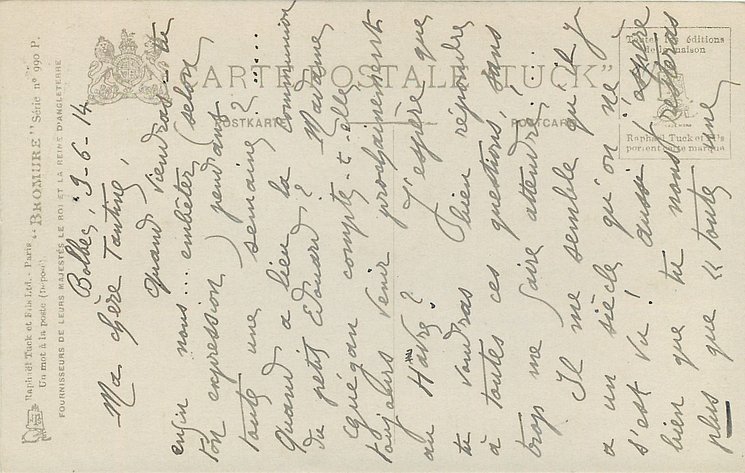 Raphaël Tuck et Fils Ltd. - Paris "BROMURE" Série n° 990 P.
Un mot à la poste (Déposé)
FOURNISSEURS DE LEURS MAJESTÉS LE ROI ET LA REINE D'ANGLETERRE
"CARTE POSTALE TUCK"
POSTKARTE
POSTCARD
Toutes les éditions
de la maison
Raphaël Tuck et Fils
portent cette marque
Bolbec, 9-6-14
Ma chère Tantine,
Quand viendras-tu
enfin nous.... embêter (selon
ton expression) pendant
toute une semaine? ......
Quand a lieu la communion
du petit Edouard? Madame
Quégan compte-t-elle
toujours venir prochainement
au Havre? J'espère que
tu voudras bien répondre
à toutes ces questions, sans
trop me faire attendre!
Il me semble qu'il y
a un siècle qu'on ne
s'est vu! aussi j'espère
bien que tu nous resteras
plus que "toute une